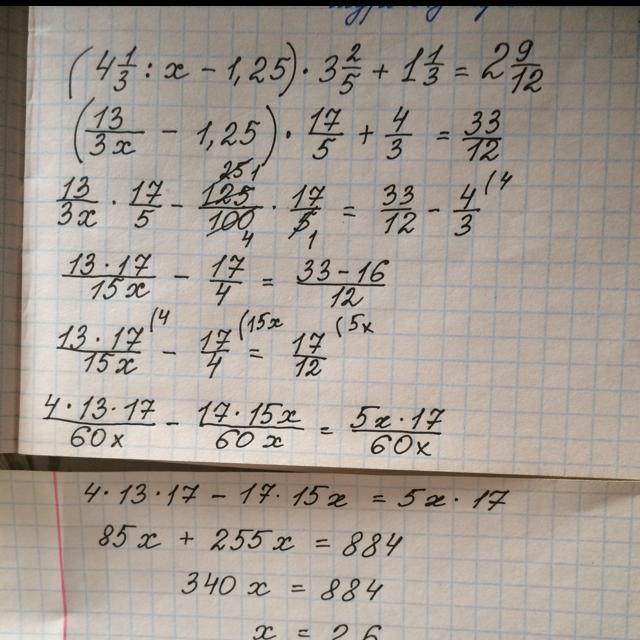 (4 1/3 : x − 1,25) · 3 2/5 + 1 1/3 = 2 9/12
(13/3x − 1,25) · 17/5 + 4/3 = 33/12
13/3x · 17/5 − 125/100 · 17/5 = 33/12 − 4/3 (4
25 1
4 1
13·17/15x − 17/4 = 33−16/12
13·17/15x (4 − 17/4 (15x = 17/12 (5x
4·13·17/60x − 17·15x/60x = 5x·17/60x
4·13·17 − 17·15x = 5x·17
85x + 255x = 884
340x = 884
x = 2,6